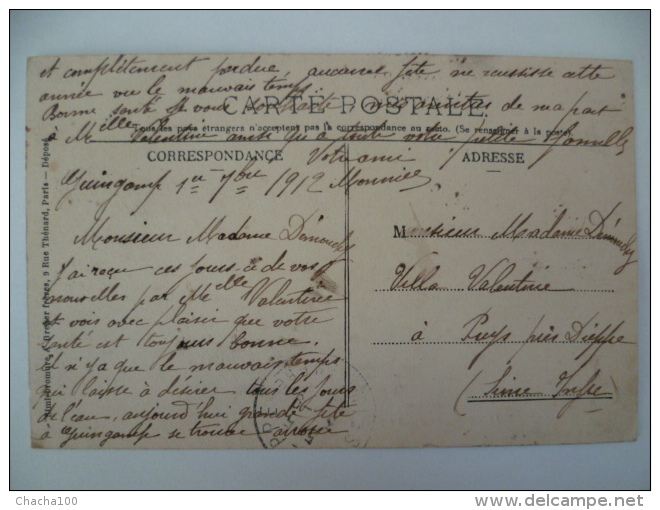 et complètement perdue, aucune fête ne reussisse cette
année vu le mauvais temps
Bonne santé je vous souhaite mes amitiés de ma part
CARTE POSTALE
à Melle Valentine ainsi qu'à toute votre petite famille
Tous les pays étrangers n'acceptent pas la correspondance au recto. (Se renseigner à la poste)
CORRESPONDANCE
Votre ami
ADRESSE
Guingamp 1er 7bre 1912
Maurice
Monsieur Madame Démouchy
J'ai reçu ces jours-ci de vos
nouvelles par Melle Valentine
et vois avec plaisir que votre
santé est toujours bonne.
Il n'y a que le mauvais temps
qui laisse à désirer tous les jours
de l'eau, aujourd'hui grande fête
à Guingamp se trouve arrosée
Monsieur Madame Démouchy
Villa Valentine
à Puys près Dieppe
(Seine Infre)
frères, 9 Rue Thénard, Paris — Déposé
Chacha100
delcampe.net